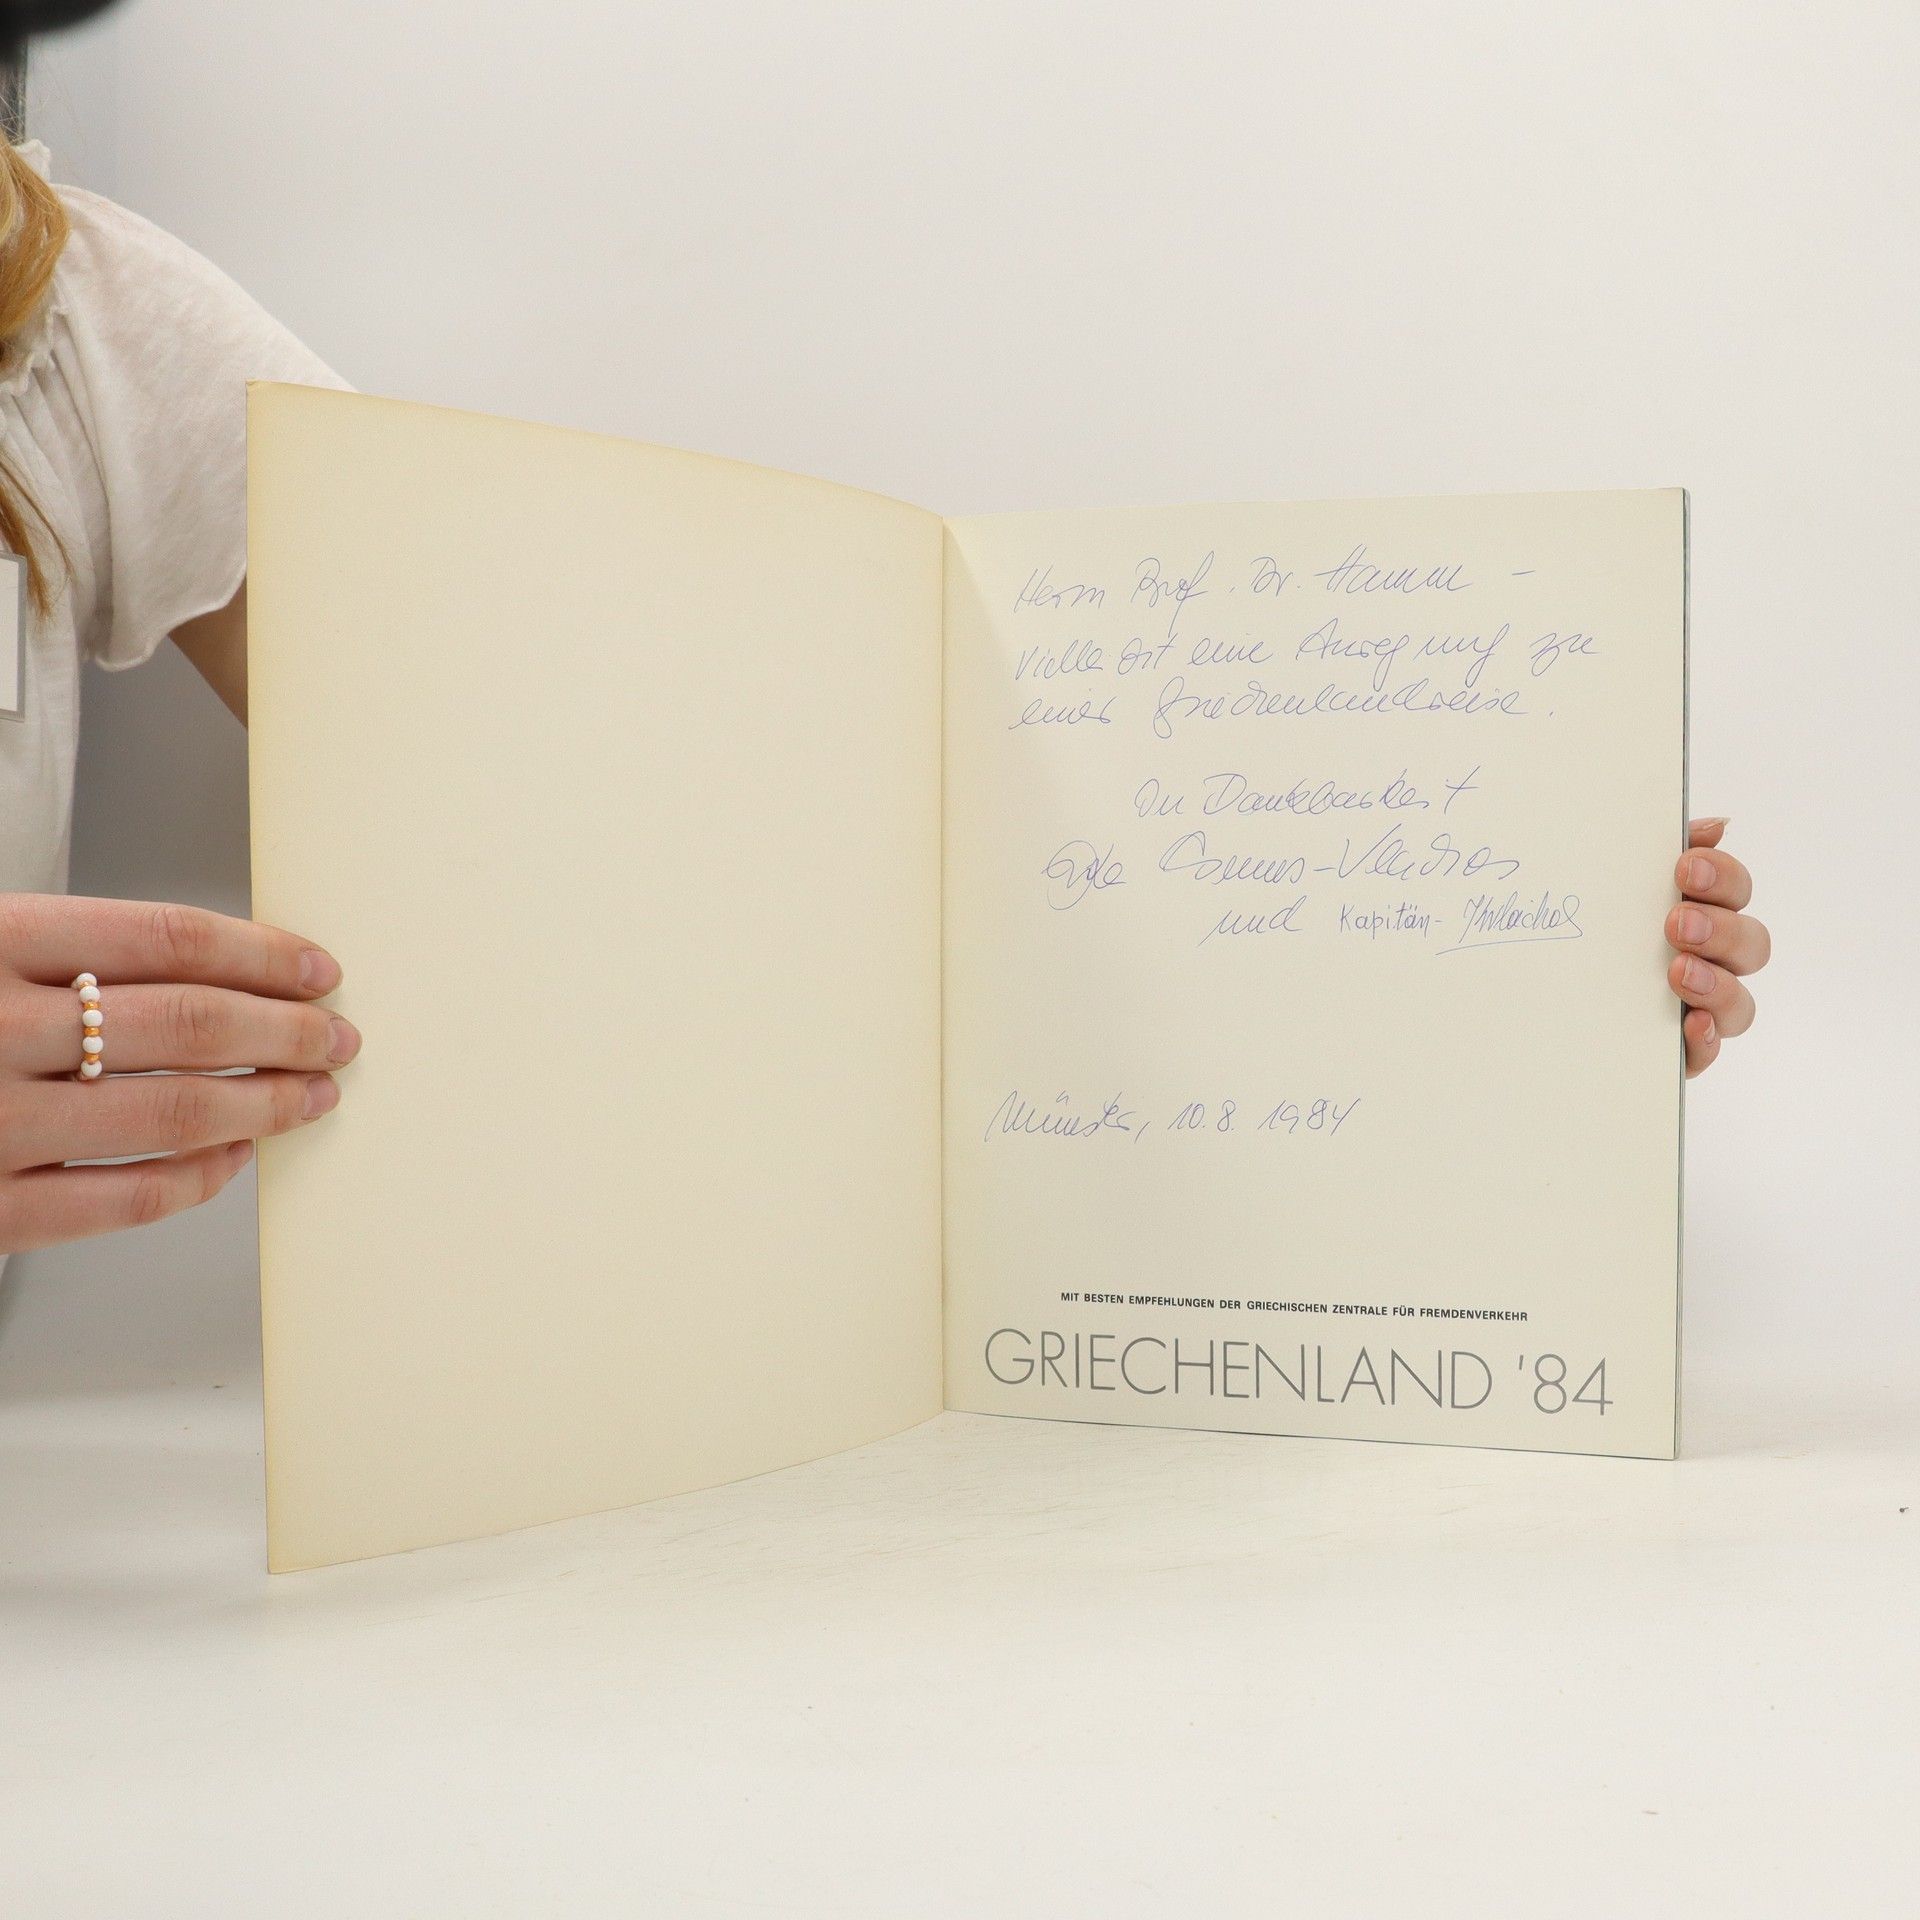 Herrn Prof. Dr. Hamm –
Vielleicht eine Anregung zu
einer Griechenlandreise.
In Dankbarkeit
und Kapitän-
Münster, 10.8.1984
MIT BESTEN EMPFEHLUNGEN DER GRIECHISCHEN ZENTRALE FÜR FREMDENVERKEHR
GRIECHENLAND '84